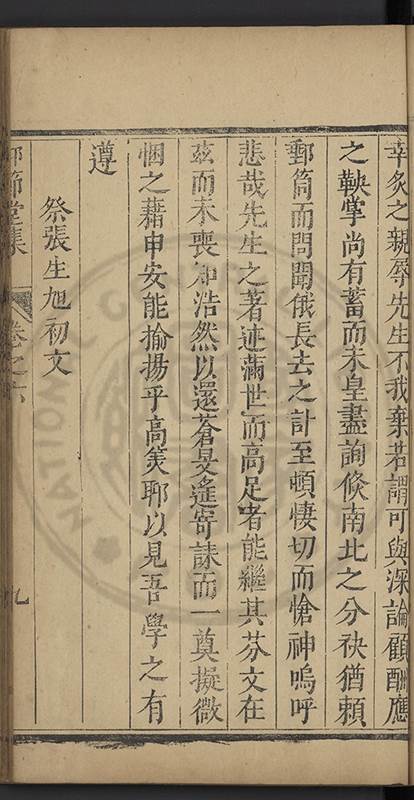 幸炙之親辱先生不我棄若謂可與深論顧酬應
之鞅掌尚有蓄而未皇盡詢倏南北之分袂猶賴
郵筒而問聞俄長去之計至頓悽切而愴神嗚呼
悲哉先生之著述滿世而高足者能繼其芬文在
茲而未喪知浩然以還蒼旻遙寄誄而一奠擬微
悃之藉申安能揄揚乎高美耶以見吾學之有
遵
祭張生旭初文
節堂集
卷之六
九